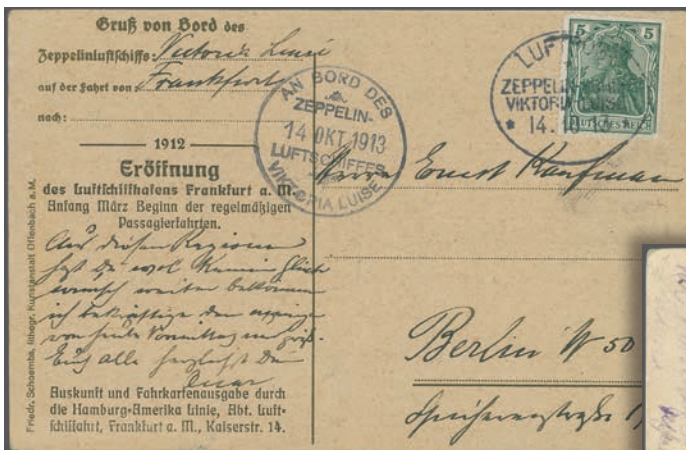 Gruß von Bord des
Zeppelinluftschiffs: Victoria Luise
auf der Fahrt von Frankfurt
nach:
1912
Eröffnung
des Luftschiffhafens Frankfurt a. M.
Anfang März Beginn der regelmäßigen
Passagierfahrten.
Aus diesen Regionen
hast Du wol keinen Glück
wunsch weiter bekommen
ich bekräftige den
von heute Vormittag und
Euch alle herzlichst Dein
Auskunft und Fahrkartenausgabe durch
die Hamburg-Amerika Linie, Abt. Luft-
schiffahrt, Frankfurt a. M., Kaiserstr. 14.
Friedr. Schoembs, lithogr. Kunstanstalt Offenbach a. M.
AN BORD DES
ZEPPELIN-
14 OKT 1913
LUFTSCHIFFES
VIKTORIA LUISE
LUFTPOST
ZEPPELIN
VIKTORIA LUISE
* 14.10
5 5
DEUTSCHES REICH
Herrn Ernst Kaufmann
Berlin W 50